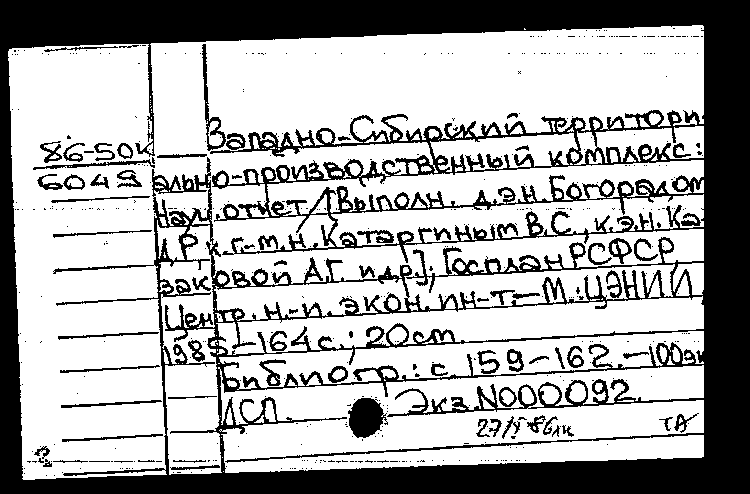 Западно-Сибирский территори-
86-50к
6049
ально-производственный комплекс:
Науч. отчет / [Выполн. д.э.н. Богорадом
Д.Р., к.г.-м.н. Катаргиным В.С., к.э.н. Ка-
заковой А.Г. и др.]; Госплан РСФСР,
Центр. н.-и. экон. ин-т.-М.: ЦЭНИИ,
1985.-164 с.; 20 cm.
Библиогр.: с. 159-162.-100эк
ДСП. Экз.N000092.